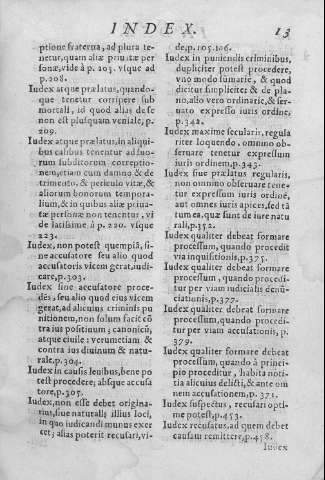 INDEX. 13
ptione fraterna, ad plura te-
netur, quam aliæ priuatæ per
sonæ, vide à p. 205. vsque ad
p.208.
Iudex atque prælatus, quando-
que tenetur corripere sub
mortali, id quod alias de se
non est plusquam veniale, p.
209.
Iudex atque prælatus, in aliqui-
bus casibus tenentur ad suo-
rum subditorum correptio-
nem, etiam cum damno & de
trimento, & periculo vitæ, &
aliorum bonorum tempora-
lium, & in quibus aliæ priua-
tæ personæ non tenentur, vi
de latissimè à p. 220. vsque
223.
Iudex, non potest quempiã, si-
ne accusatore seu alio quod
accusatoris vicem gerat, iudi-
care, p.303.
Iudex sine accusatore proce-
dẽs, seu alio quod eius vicem
gerat, ad alicuius criminis pu
nitionem, non solum facit cõ
tra ius positiuum; canonicũ,
atque ciuile: verumetiam &
contra ius diuinum & natu-
rale, p.304.
Iudex in causis leuibus, bene po
test procedere; absque accusa
tore, p.305.
Iudex, non esse debet origina-
rius, siue naturalis illius loci,
in quo iudicandi munus exer
cet; alias poterit recusari, vi-
de, p.105.106.
Iudex in puniendis criminibus,
dupliciter potest procedere,
vno modo sũmariè, & quod
dicitur simpliciter & de pla-
no, alio vero ordinariè, & ser-
uato expresso iuris ordine,
p.342.
Iudex maximè secularis, regula
riter loquendo, omnino ob-
seruare tenetur expressum
iuris ordinem, p.343.
Iudex siue prælatus regularis,
non omnino obseruare tene-
tur expressum iuris ordinẽ,
aut omnes iuris apices, sed tã
tum ea, quæ sunt de iure natu
rali, p.352.
Iudex qualiter debeat formare
processum, quando procedit
via inquisitionis, p.375.
Iudex qualiter debeat formare
processum, quando procedi-
tur per viam iudicialis denũ-
ciationis, p.377.
Iudex qualiter debeat formare
processum, quando procedi-
tur per viam accusationis, p.
379.
Iudex qualiter formare debeat
processum, quando à princi-
pio proceditur, habita noti-
tia alicuius delicti, & ante om
nem accusationem, p.371.
Iudex suspectus, recusari opti-
mè potest, p.453.
Iudex recusatus, ad quem debet
causam remittere, p.458.
Iudex